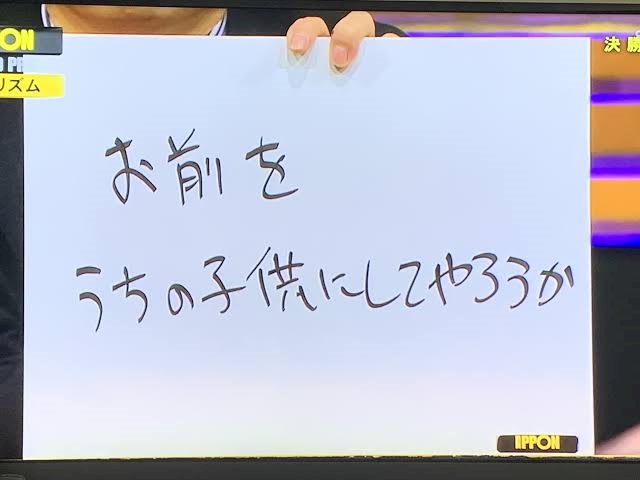 PPON
リズム
決勝
お前を
うちの子供にしてやろうか
IPPON